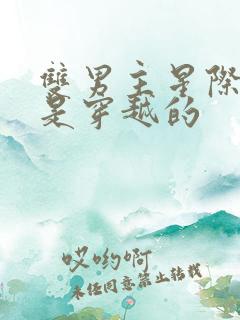 雙男主星際
是穿越的
哎哟啊
未经同意禁止转载